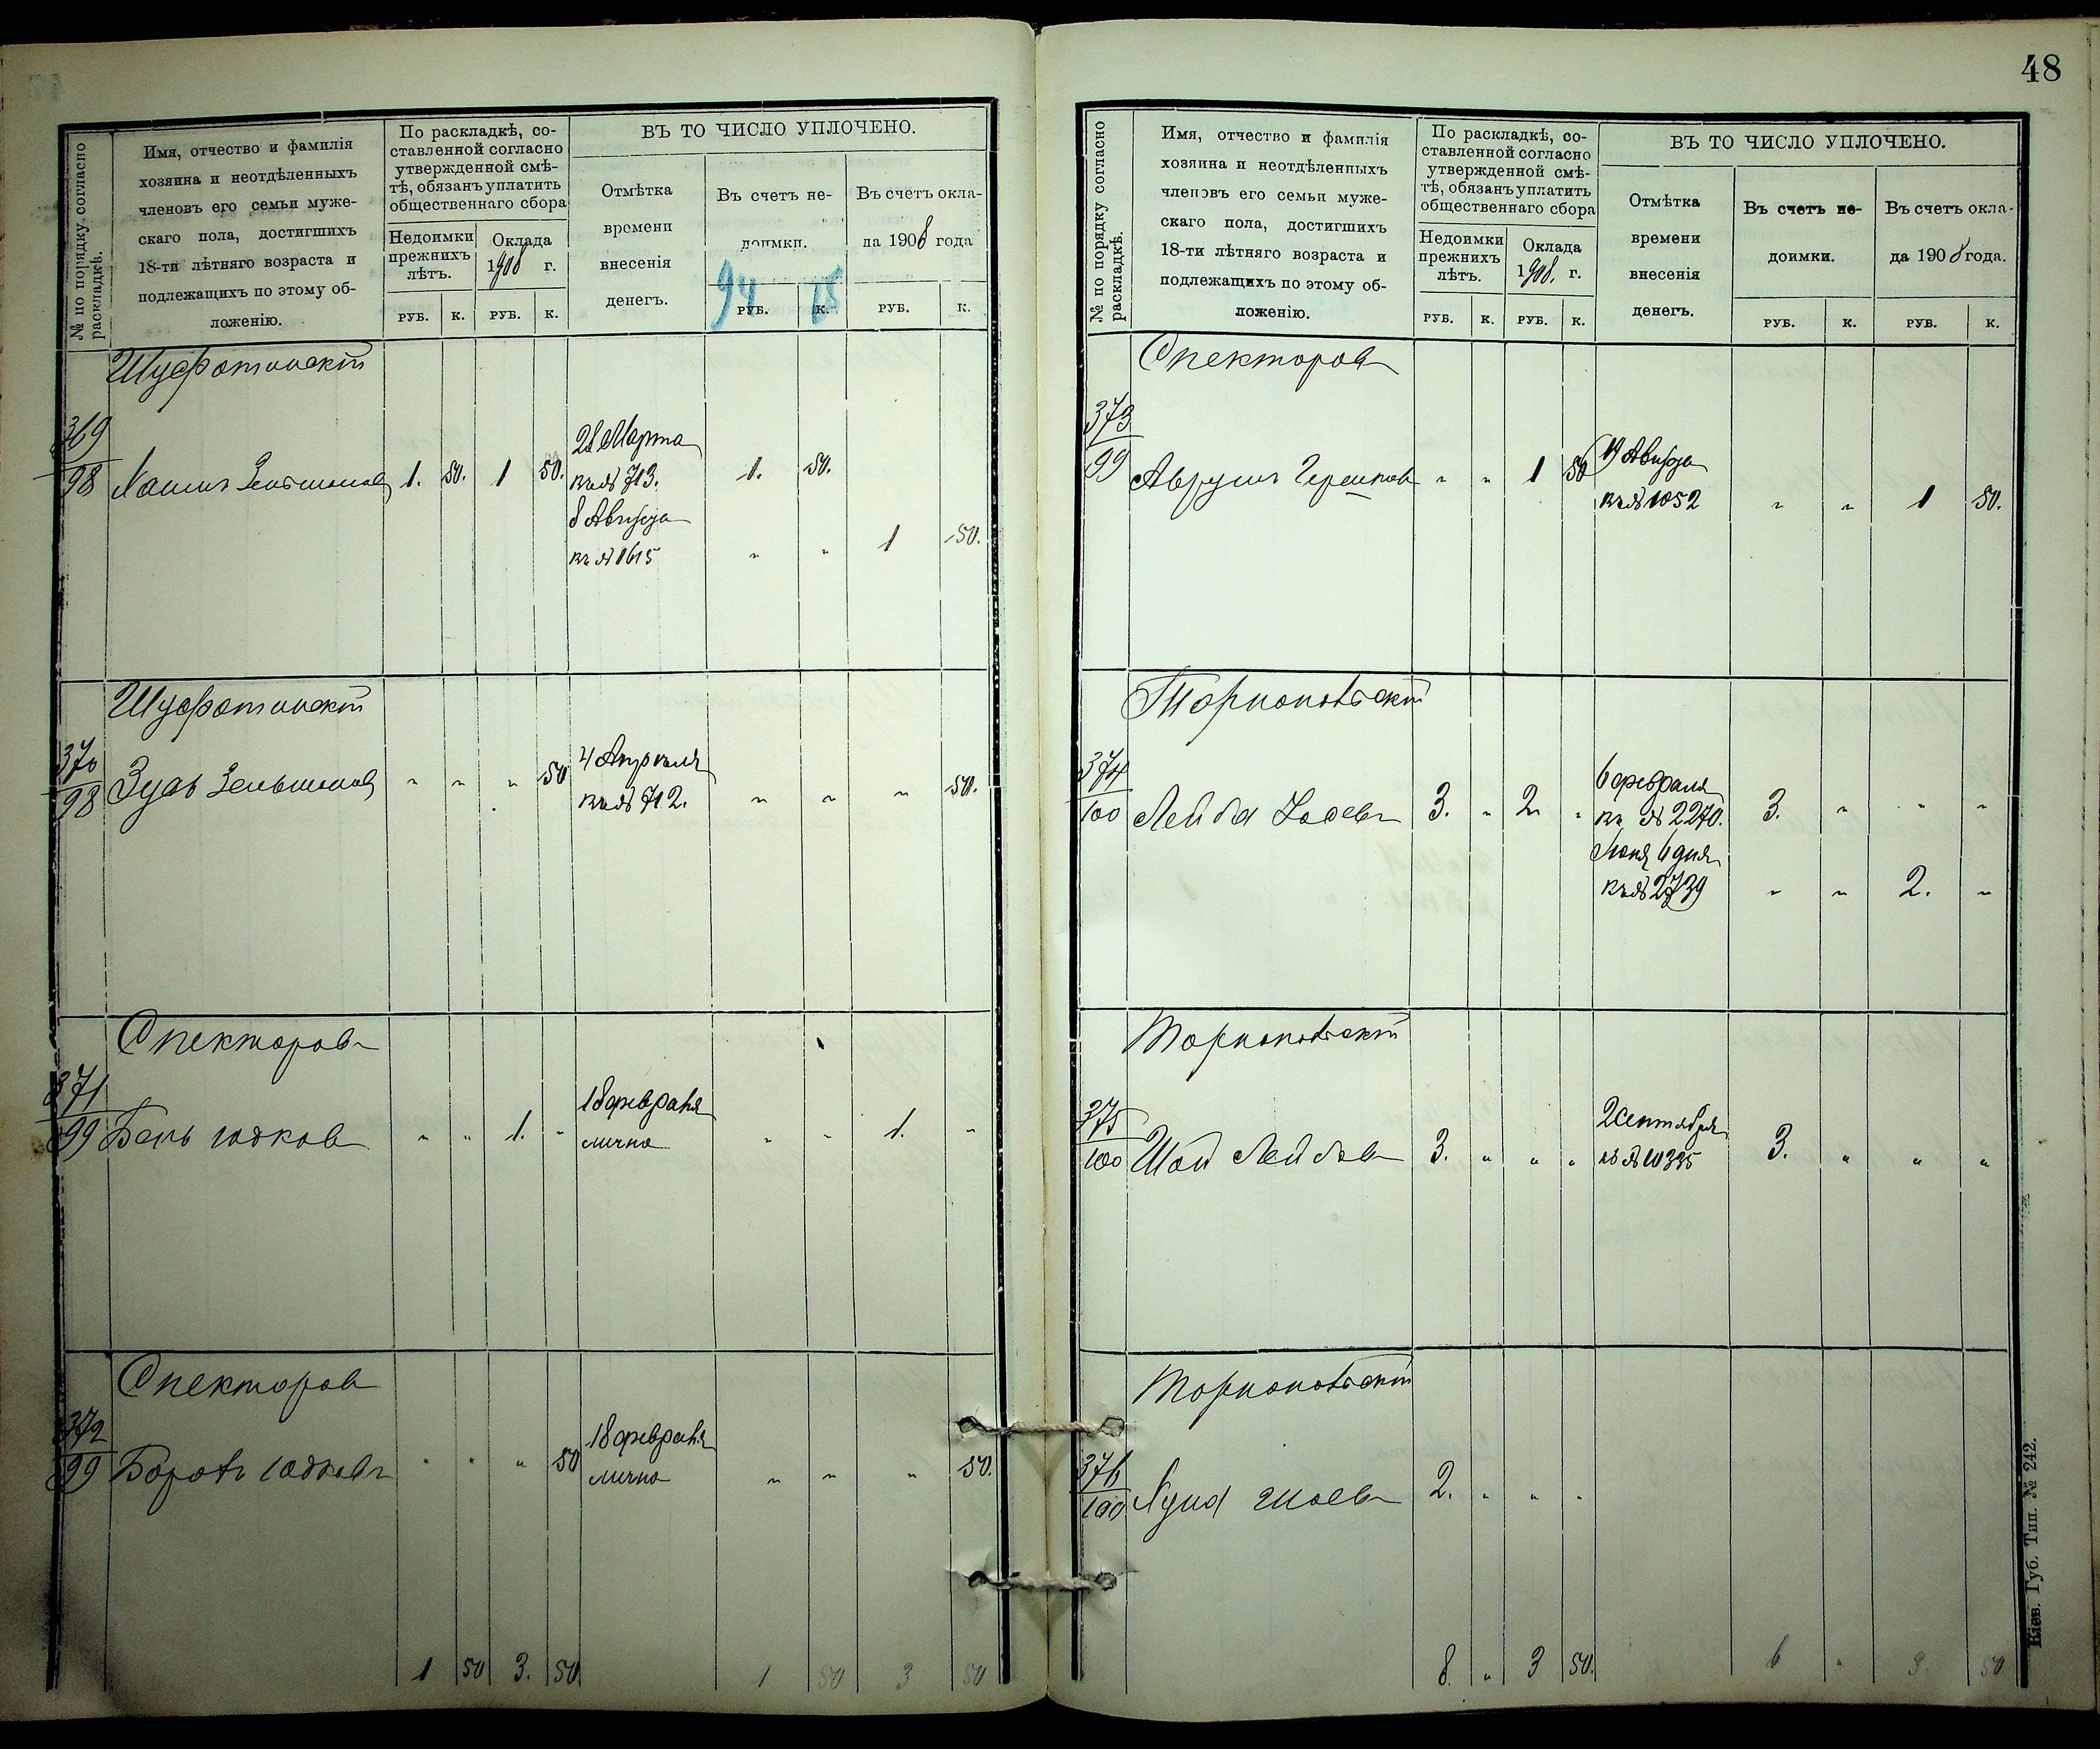 № по порядку согласно раскладкѣ.
Имя, отчество и фамилія
хозяина и неотдѣленныхъ
членовъ его семьи муже-
скаго пола, достигшихъ
18-ти лѣтняго возраста и
подлежащихъ по этому об-
ложенію.
По раскладкѣ, со-
ставленной согласно
утвержденной смѣ-
тѣ, обязанъ уплатить
общественнаго сбора
Недоимки
прежнихъ
лѣтъ.
Оклада
1908 г.
РУБ. К. РУБ. К.
ВЪ ТО ЧИСЛО УПЛОЧЕНО.
Отмѣтка
времени
внесенія
денегъ.
Въ счетъ не-
доимки.
94 75
РУБ. К.
Въ счетъ окла-
да 1908 года
РУБ. К.
369
98
28 Марта
1. 50. 1 50. къ № 713. 1. 50.
8 Августа
къ № 1615 " " 1 50.
370
98
Зусь Зельмановъ " " " 50 4 Апреля
къ № 712. " " " 50.
Спекторовъ
371
99
Бень Юдковъ " " 1. " 18 февраля
лично " " 1. "
Спекторовъ
372
99
Борохъ Юдковъ " " " 50 18 февраля
лично " " " 50.
1 50 3. 50 1 50 3 50
48
№ по порядку согласно раскладкѣ.
Имя, отчество и фамилія
хозяина и неотдѣленныхъ
членовъ его семьи муже-
скаго пола, достигшихъ
18-ти лѣтняго возраста и
подлежащихъ по этому об-
ложенію.
По раскладкѣ, со-
ставленной согласно
утвержденной смѣ-
тѣ, обязанъ уплатить
общественнаго сбора
Недоимки
прежнихъ
лѣтъ.
Оклада
1908. г.
РУБ. К. РУБ. К.
ВЪ ТО ЧИСЛО УПЛОЧЕНО.
Отмѣтка
времени
внесенія
денегъ.
Въ счетъ не-
доимки.
РУБ. К.
Въ счетъ окла-
да 1908 года.
РУБ. К.
Спекторовъ
373
99
Аврумъ Гершковъ " " 1 50 19 Августа
къ № 1052 " " 1 50.
374
100
Лейба 3. " 2 " 6 февраля
къ № 2270. 3. " " "
Июня 6 дня
къ № 2739 " " 2. "
375
100
Шая Лейбовъ 3. " " " 2 Сентября
къ № 10335 3. " " "
376
100
2. " " "
8. " 3 50. 6 " 3. 50
Кіев. Губ. Тип. № 242.